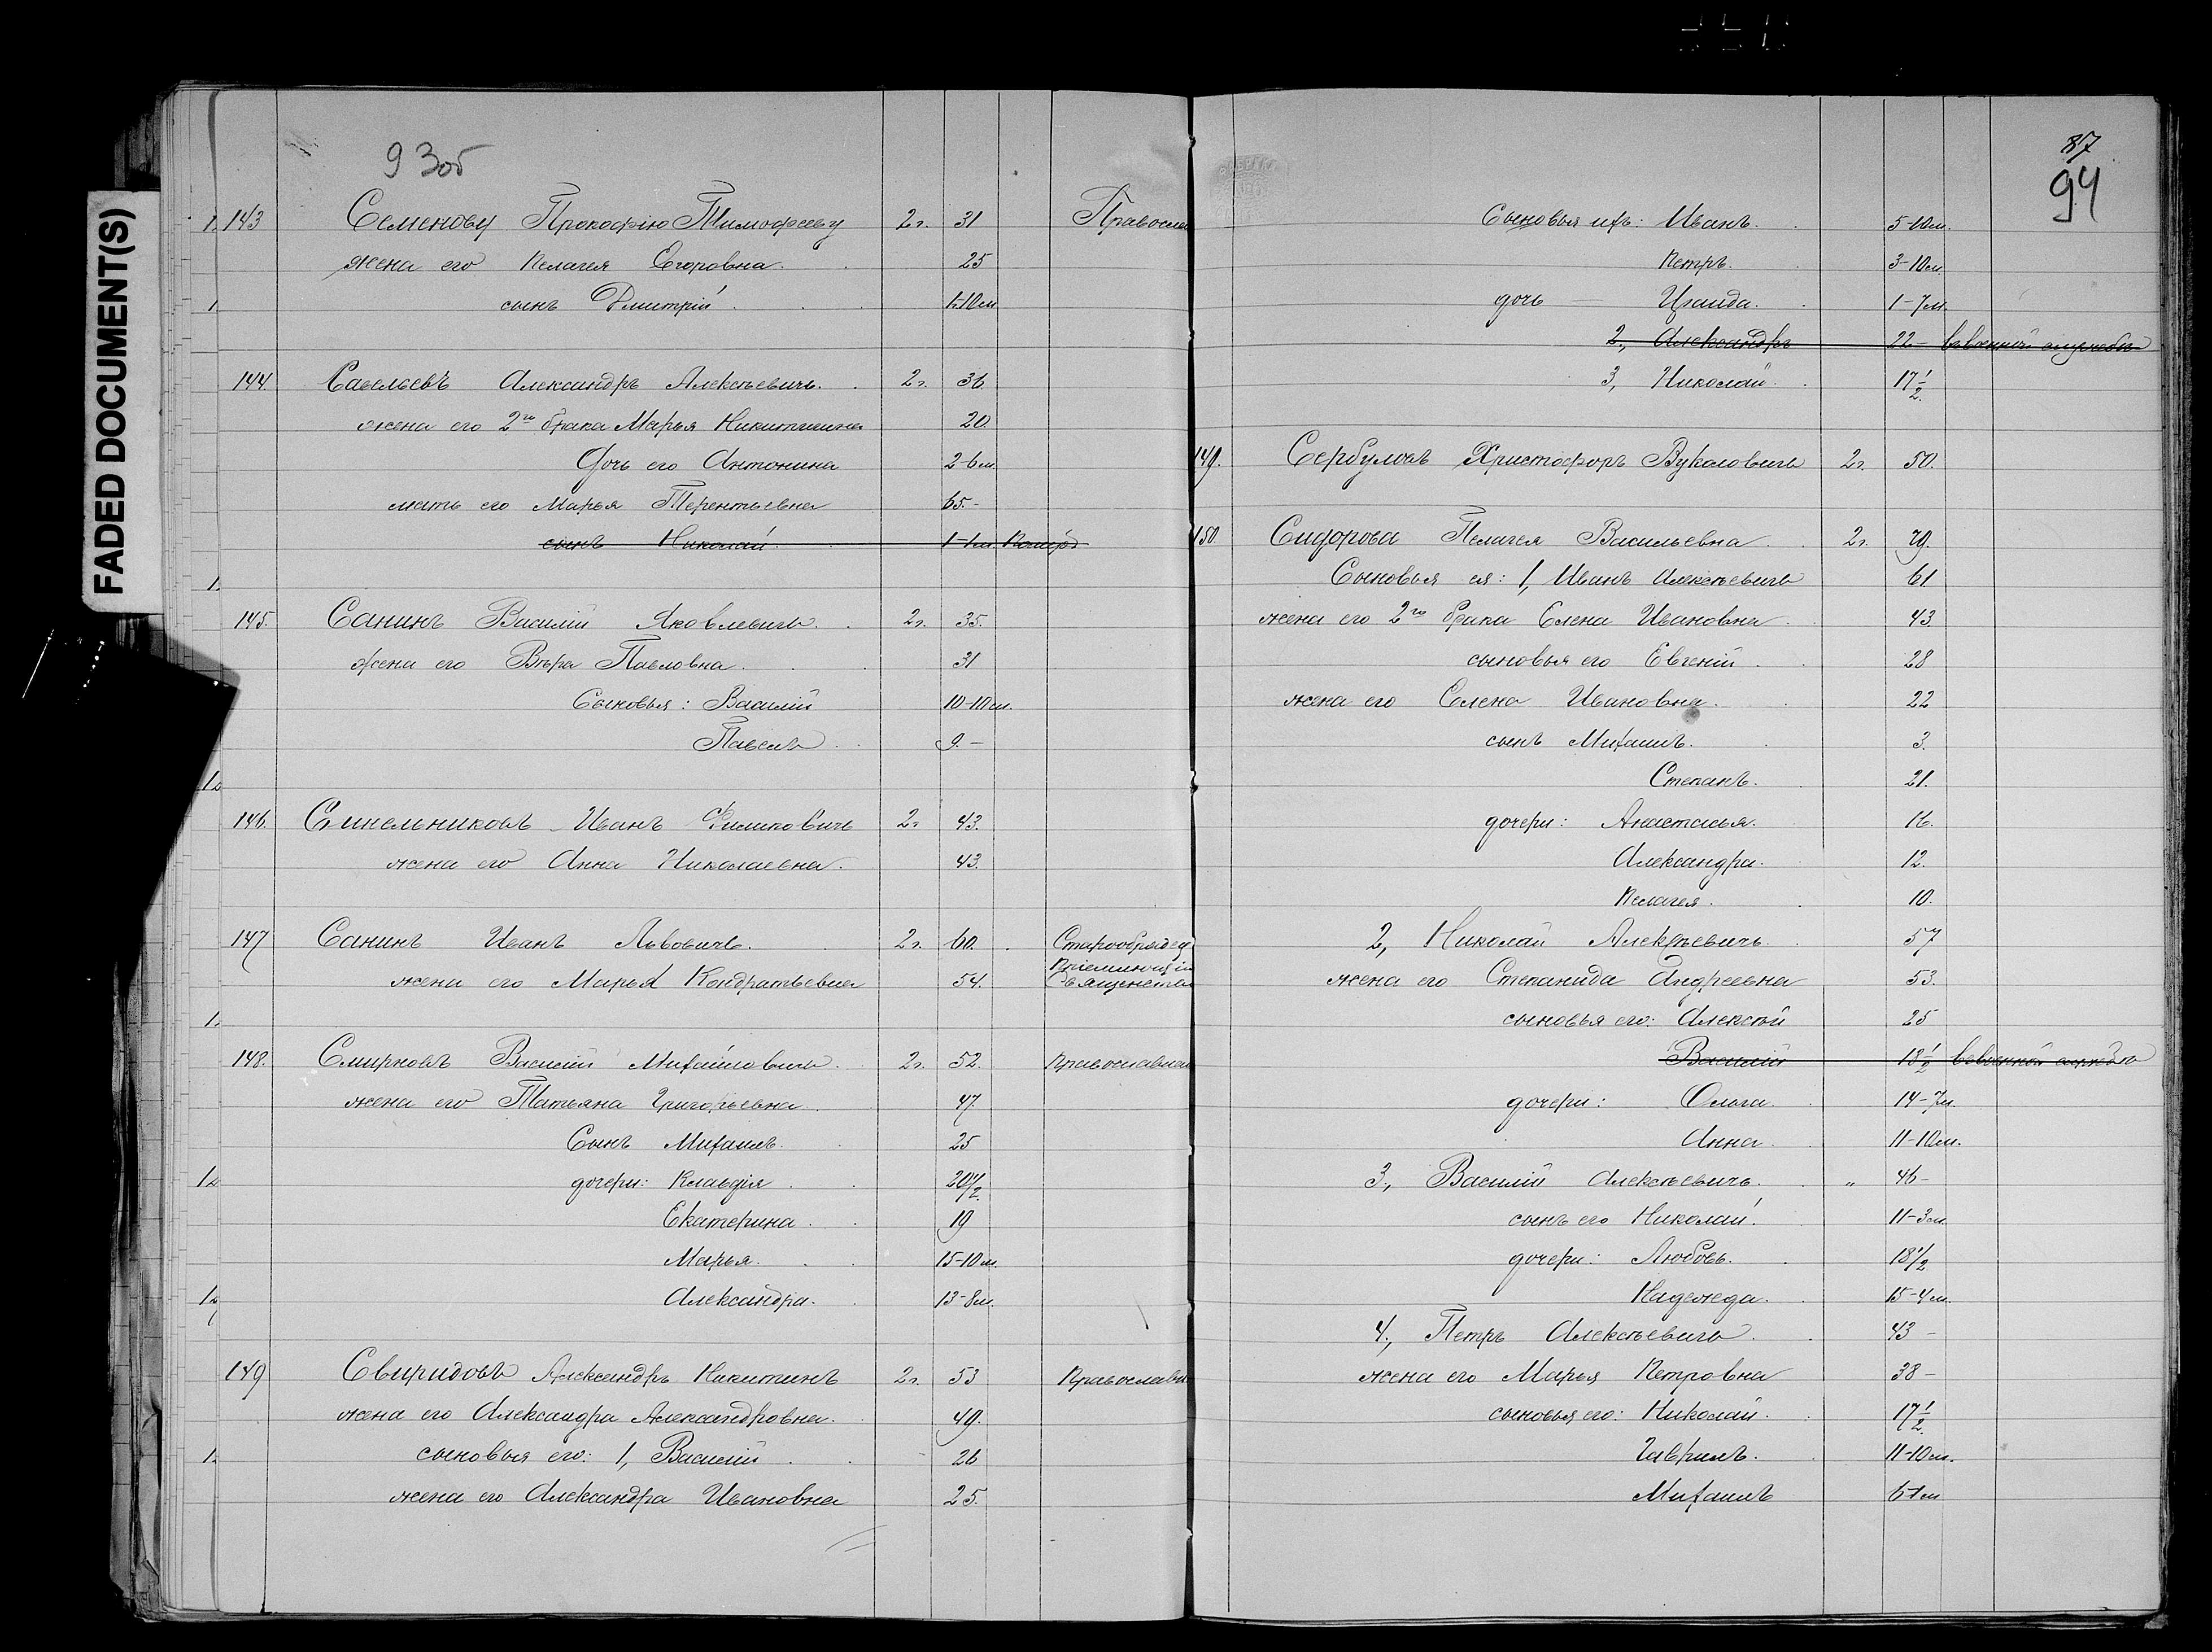 FADED DOCUMENT(S)
93об
143 Семенову Прокофію Тимофееву 2г. 31 Правосла
жена его Пелагея Егоровна. 25
сынъ Дмитрій 1-10м
144 Савельевъ Александръ Алексѣевичъ. 2г. 36
жена его 2го брака Марья Никитишна 20
Дочь его Антонина 2-6м
мать его Марья Терентьевна 65.-
сынъ Николай 1-1м.
145. Санинъ Василій Яковлевичъ. 2г. 35.
жена его Вѣра Павловна. 31
Сыновья: Василій 10-10м.
Павелъ 9.-
146. Синельниковъ Иванъ Филиповичъ 2г 43.
жена его Анна Николаевна. 43.
147 Санинъ Иванъ Львовичъ. 2г. 60. Старообрядец
пріемлющій
жена его Марья Кондратьевна 54. Священства
148. Смирновъ Василій Михайловичъ. 2г. 52. Православная
жена его Татьяна Григорьевна. 47.
Сынъ Михаилъ. 25
дочери: Клавдія 20 1/2
Екатерина 19
Марья. 15-10м.
Александра. 13-8м.
149 Свиридовъ Александръ Никитинъ 2г. 53 Православн
жена его Александра Александровна. 49.
сыновья его: 1, Василій 26
жена его Александра Ивановна 25.
87
94
Сыновья ихъ: Иванъ. 5-10м.
Петръ. 3-10м
дочь Ираида. 1-7м.
2, Александръ 22- въ военной службѣ
3, Николай 17 1/2.
149. Сербуловъ Христофоръ Вуколовичъ 2г. 50.
150. Сидорова Пелагея Васильевна 2г. 79.
Сыновья ея: 1, Иванъ Алексѣевичъ 61
жена его 2го брака Елена Ивановна 43.
сыновья его Евгеній 28
жена его Елена Ивановна. 22
сынъ Михаилъ. 3.
Степанъ. 21.
дочери: Анастасья. 16.
Александра. 12.
Пелагея. 10.
2, Николай Алексѣевичъ. 57
жена его Степанида Андреевна 53.
сыновья его: Алексѣй 25
Василій 18 1/2 въ военной службѣ
дочери: Ольга 14-7м.
Анна 11-10м.
3, Василій Алексѣевичъ. " 46-
сынъ его Николай. 11-3м.
дочери: Любовь. 18 1/2
Надежда. 15-4м.
4, Петръ Алексѣевичъ. 43 -
жена его Марья Петровна 38 -
сыновья его: Николай. 17 1/2.
Гаврилъ. 11-10м.
Михаилъ 6-1м